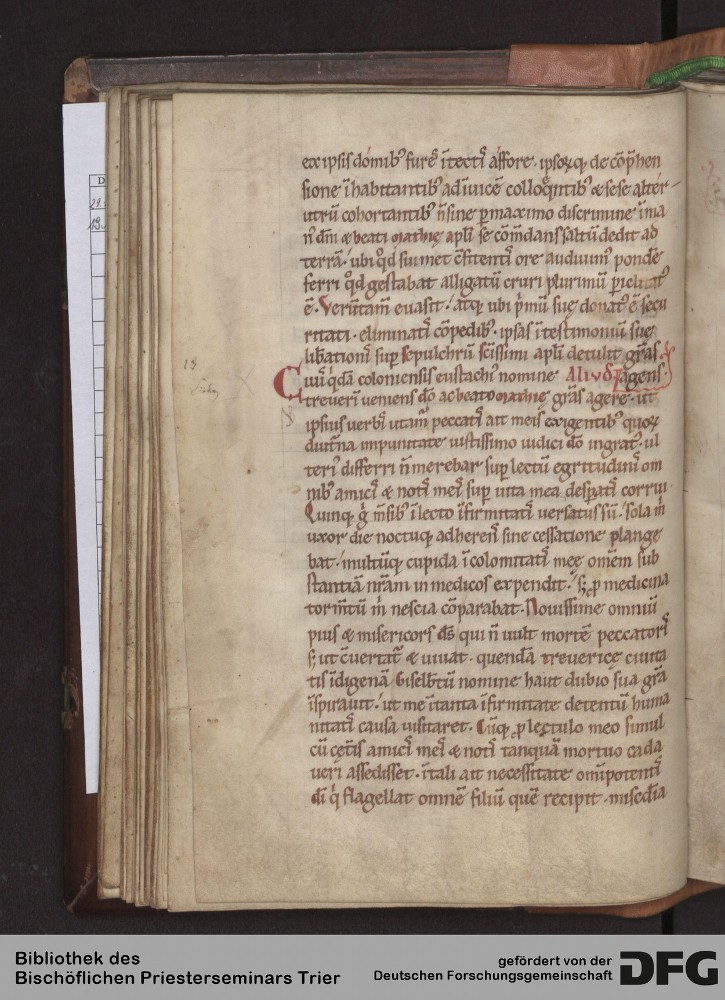 ex ipsis domib᷒ fure᷒ ītect᷒ affore · ipsoꝝq; de cōp̄hen
sione īhabitantib᷒ adīuicē colloq̄ntib᷒ & sese alter
utrū cohortantib᷒ n̄ sine p̱maximo discrimine īma
n᷒ dn̄i & beati mathie apl̄i se cōm̄dans saltū dedit ad
terrā · ubi q᷒d suimet c̄fitent᷒ ore audiuim᷒ ponde
ferri q᷒d gestabat alligatū cruri plurimū p̱iclitat᷒
ē · Verūtam̄ euasit · atq; ubi p᷒mū sue donat᷒ ē secu
ritati · eliminat᷒ cōpedib᷒ · ipsas ī testimoniū sue
lib̄ation᷒ sup̱ sepulchrū sc̄issimi apl̄i detulit gr̄as
Cuu᷒ q᷒dā coloniensis eustachi᷒ nomine Aliud agens
treueri᷒ ueniens dō ac beato mathie gr̄as agere · ut
ipsius uerb᷒ utam᷒ peccat᷒ ait meis exigentib᷒ quoꝝ
diutīna impunitate iustissimo iudici dō ingrat᷒ · ul
teri᷒ differri n̄ merebar sup̱ lectū egritudinū om
nib᷒ amic᷒ & not᷒ me᷒ sup̱ uita mea desp̱at᷒ corrui ·
Quinq; g᷒ m̄sib᷒ ī lecto īfirmitat᷒ uersatus sū · sola m᷒
uxor die noctuq; adheren᷒ sine cessatione plange
bat · multūq; cupida īcolomitat᷒ mee omēm sub
stantiā nr̄am in medicos expendit · s; ꝓ medicina
torm̄tū m᷒ nescia cōparabat · Nouissime omniū
pius & misericors ds̄ qui n̄ uult mortē peccator᷒
s; ut c̄uertat᷒ & uiuat · quendā treuerice ciuita
tis īdigenā Giselb̄tū nomine haut dubio sua gr̄a
īspirauit · ut me ītanta īfirmitate detentū huma
nitat᷒ causa uisitaret · Cūq; ꝓ lectulo meo simul
cū cet᷒is amic᷒ me᷒ & not᷒ tanquā mortuo cada
ueri assedisset · ītali ait necessitate om̄ipotent᷒
di᷒ q᷒ flagellat omnē filiū quē recipit · mis᷒edia
18
Bibliothek des
Bischöflichen Priesterseminars Trier
gefördert von der
Deutschen Forschungsgemeinschaft
DFG